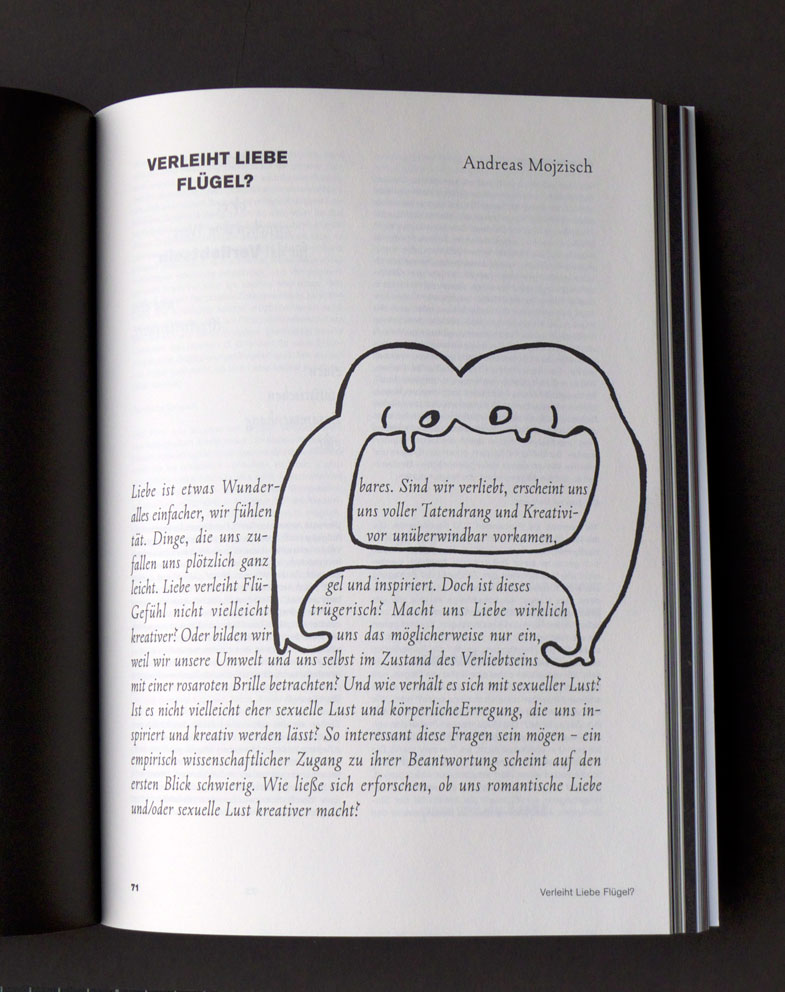 VERLEIHT LIEBE
FLÜGEL?
Andreas Mojzisch
Liebe ist etwas Wunderbares. Sind wir verliebt, erscheint uns
alles einfacher, wir fühlen uns voller Tatendrang und Kreativi-
tät. Dinge, die uns zuvor unüberwindbar vorkamen,
fallen uns plötzlich ganz
leicht. Liebe verleiht Flügel und inspiriert. Doch ist dieses
Gefühl nicht vielleicht trügerisch? Macht uns Liebe wirklich
kreativer? Oder bilden wir uns das möglicherweise nur ein,
weil wir unsere Umwelt und uns selbst im Zustand des Verliebtseins
mit einer rosaroten Brille betrachten? Und wie verhält es sich mit sexueller Lust?
Ist es nicht vielleicht eher sexuelle Lust und körperlicheErregung, die uns in-
spiriert und kreativ werden lässt? So interessant diese Fragen sein mögen – ein
empirisch wissenschaftlicher Zugang zu ihrer Beantwortung scheint auf den
ersten Blick schwierig. Wie ließe sich erforschen, ob uns romantische Liebe
und/oder sexuelle Lust kreativer macht?
71
Verleiht Liebe Flügel?